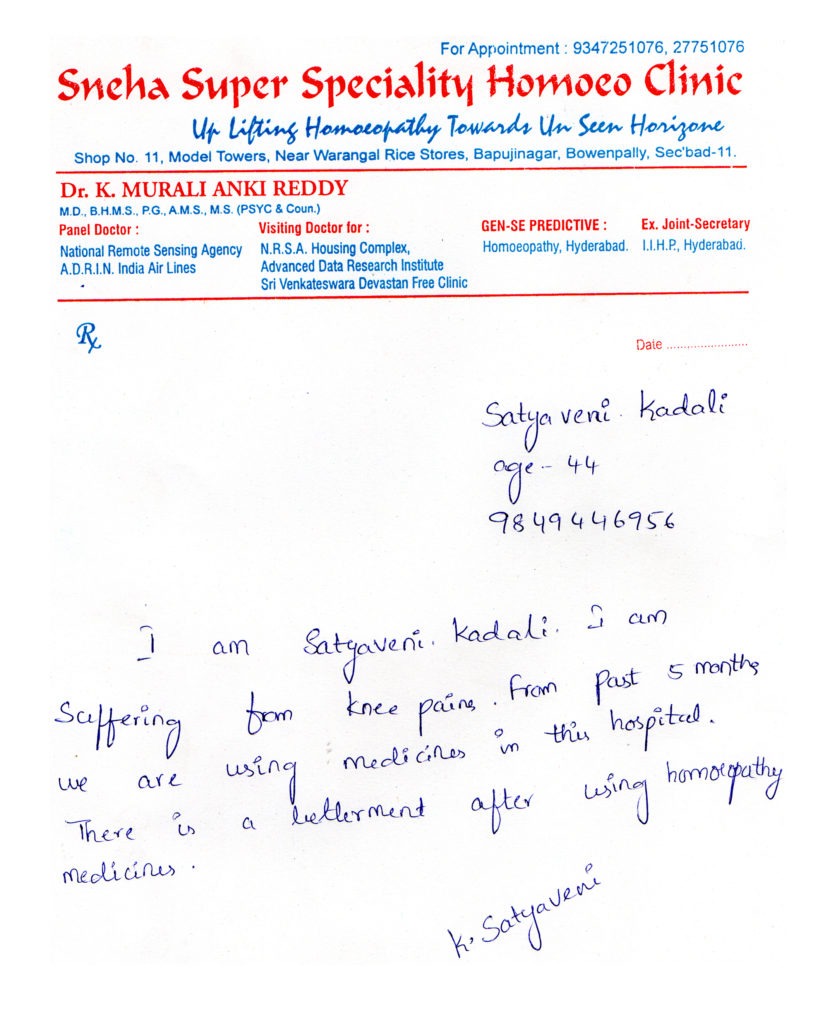 For Appointment : 9347251076, 27751076
Sneha Super Speciality Homoeo Clinic
Up Lifting Homoeopathy Towards Un Seen Horizone
Shop No. 11, Model Towers, Near Warangal Rice Stores, Bapujinagar, Bowenpally, Sec'bad-11.
Dr. K. MURALI ANKI REDDY
M.D., B.H.M.S., P.G., A.M.S., M.S. (PSYC & Coun.)
Panel Doctor :
National Remote Sensing Agency
A.D.R.I.N. India Air Lines
Visiting Doctor for :
N.R.S.A. Housing Complex,
Advanced Data Research Institute
Sri Venkateswara Devastan Free Clinic
GEN-SE PREDICTIVE :
Homoeopathy, Hyderabad.
Ex. Joint-Secretary
I.I.H.P., Hyderabad.
Rx
Date ........................
Satyaveni. Kadali
age - 44
9849446956
I am Satyaveni. Kadali. I am
Suffering from knee pains. From past 5 months
we are using medicines in this hospital.
There is a betterment after using homoeopathy
medicines.
K. Satyaveni